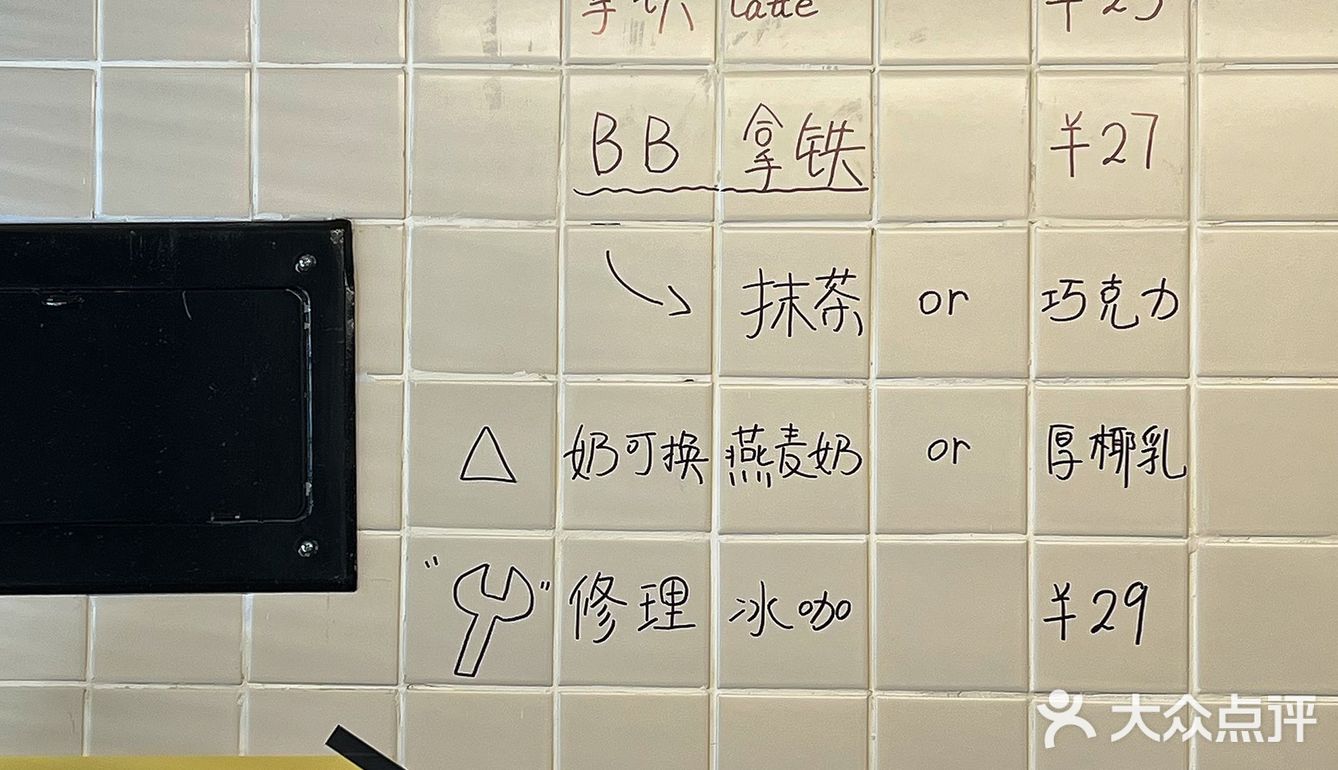 拿铁 latte ¥25
BB 拿铁 ¥27
抹茶 or 巧克力
奶可换 燕麦奶 or 厚椰乳
"" 修理 冰咖 ¥29
大众点评